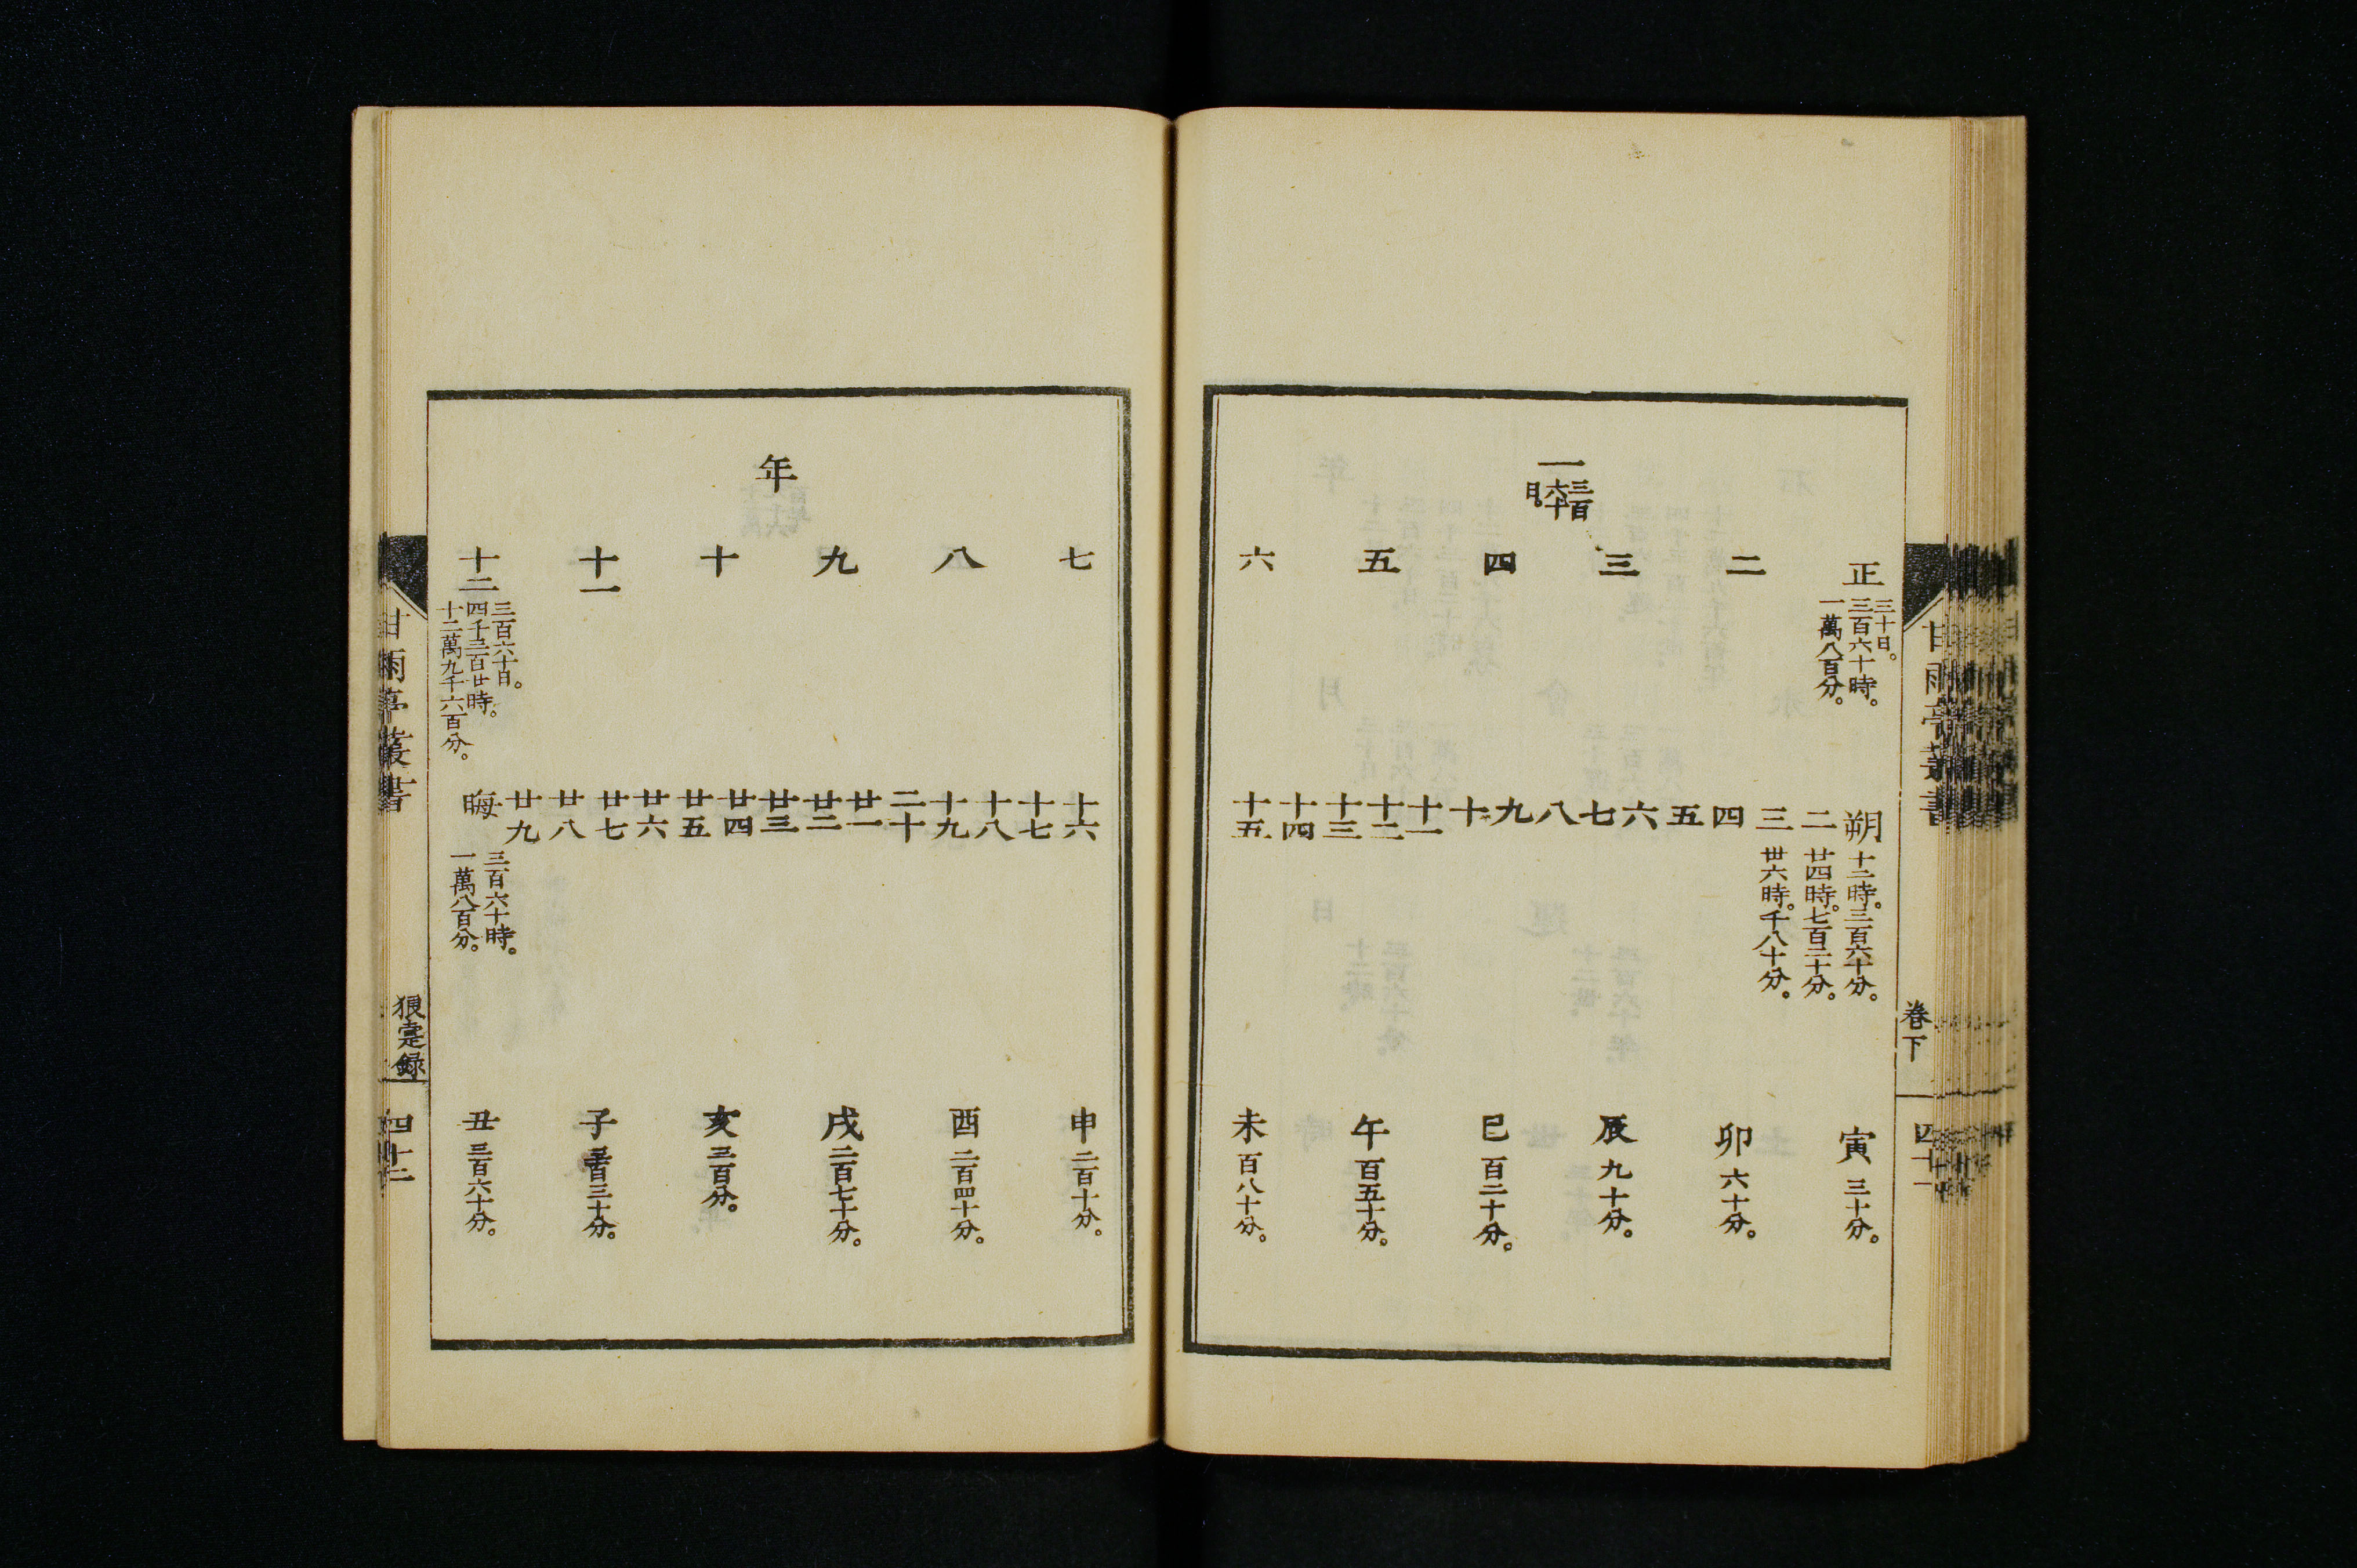 一
三百
六十
日。
正
三十日。
三百六十時。
一萬八百分。
二
三
四
五
六
朔
十二時。三百六十分。
二
廿四時。七百二十分。
三
卅六時。千八十分。
四
五
六
七
八
九
十
十一
十二
十三
十四
十五
寅 三十分。
卯 六十分。
辰 九十分。
巳 百二十分。
午 百五十分。
未 百八十分。
甘雨亭叢書
卷下
四十一
年
七
八
九
十
十一
十二
三百六十日。
四千三百廿時。
十二萬九千六百分。
十六
十七
十八
十九
二十
廿一
廿二
廿三
廿四
廿五
廿六
廿七
廿八
廿九
晦
三百六十時。
一萬八百分。
申 二百十分。
酉 二百四十分。
戌 二百七十分。
亥 三百分。
子 三百三十分。
丑 三百六十分。
甘雨亭叢書
狼疐録
四十二